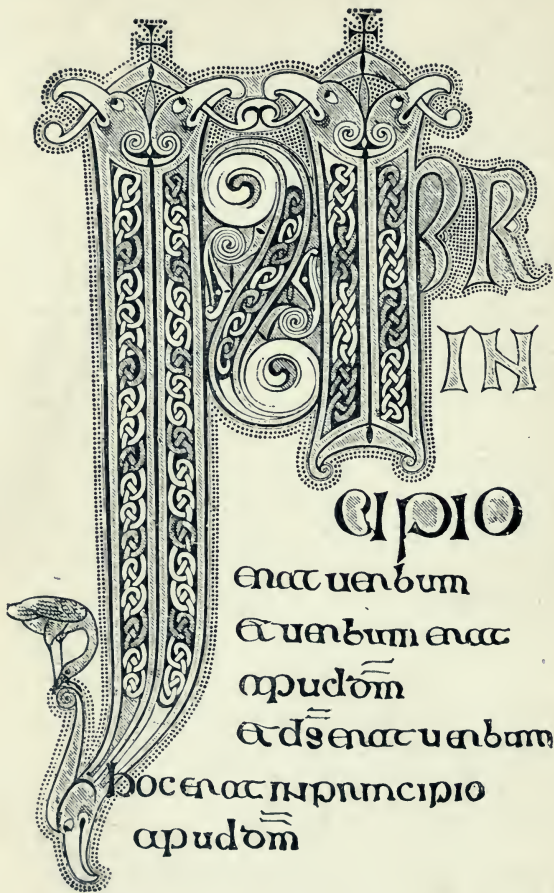 IN PR
IN
CIPIO
erat uerbum
et uerbum erat
apud dm̅
et ds̅ erat uerbum
hoc erat in principio
apud dm̅